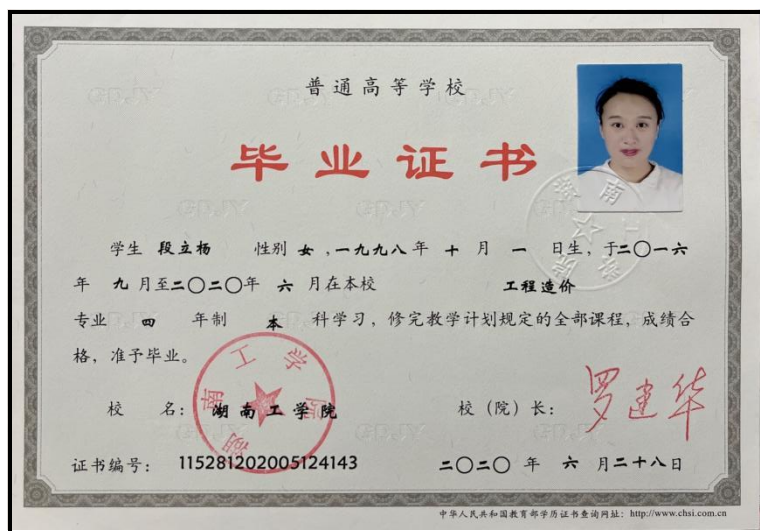 普通高等学校
毕业证书
学生 段立杨 性别 女,一九九八年 十 月 一 日生,于二〇一六
年 九 月至二〇二〇年 六 月在本校 工程造价
专业 四 年制 本 科学习,修完教学计划规定的全部课程,成绩合
格,准予毕业。
校 名: 湖南工学院 校(院)长: 罗建华
湖南工学院
证书编号: 115281202005124143 二〇二〇 年 六 月二十八日
中华人民共和国教育部学历证书查询网址: http://www.chsi.com.cn